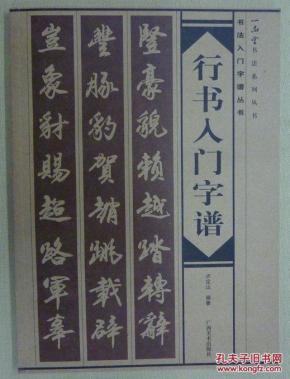 一品堂书法系列丛书
书法入门字谱丛书
行书入门字谱
卢定山 编著
广西美术出版社
豎豪貌賴越踏轉辭
豐豚豹賀趙跳載辟
豈象豺賜超路軍辜
孔夫子旧书网